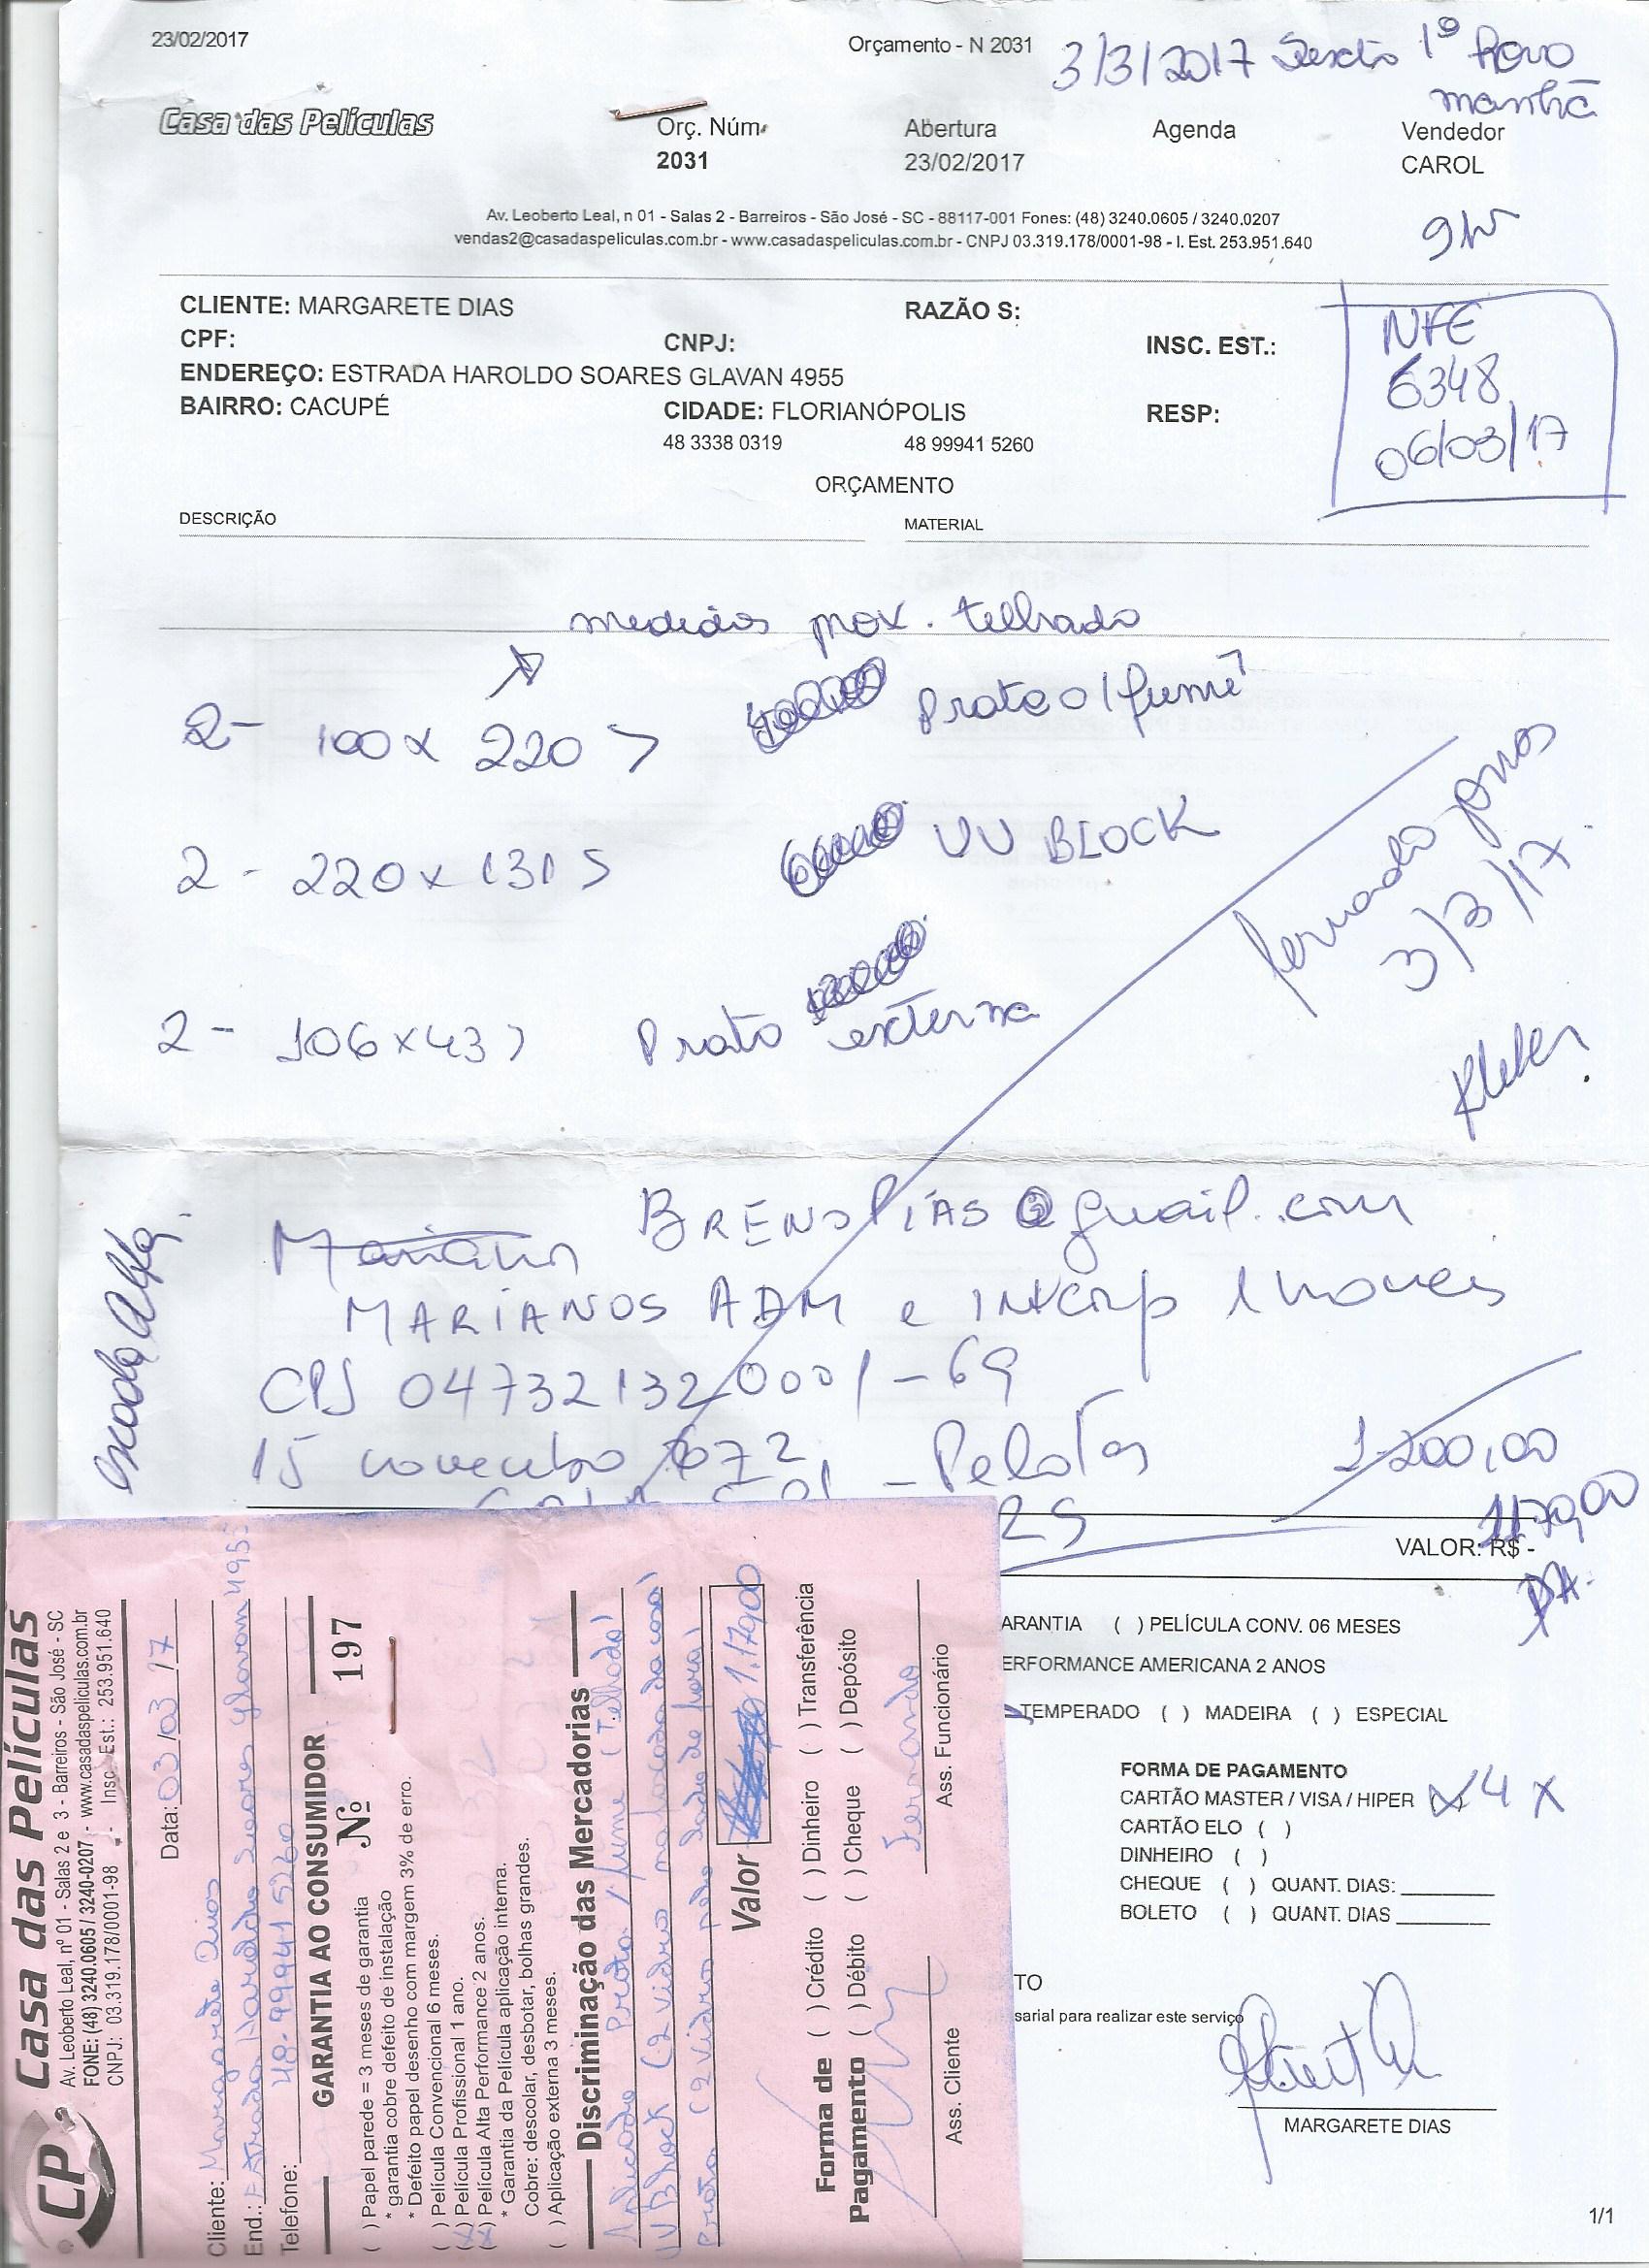 23/02/2017
Orçamento - N 2031
3/3/2017 Sexta 1º
manhã
Casa das Películas
Orç. Núm.
2031
Abertura
23/02/2017
Agenda
Vendedor
CAROL
9hr
Av. Leoberto Leal, n 01 - Salas 2 - Barreiros - São José - SC - 88117-001 Fones: (48) 3240.0605 / 3240.0207
vendas2@casadaspeliculas.com.br - www.casadaspeliculas.com.br - CNPJ 03.319.178/0001-98 - I. Est. 253.951.640
CLIENTE: MARGARETE DIAS
RAZÃO S:
CPF:
CNPJ:
INSC. EST.:
ENDEREÇO: ESTRADA HAROLDO SOARES GLAVAN 4955
BAIRRO: CACUPÉ
CIDADE: FLORIANÓPOLIS
RESP:
48 3338 0319
48 99941 5260
NFE
6348
06/03/17
ORÇAMENTO
DESCRIÇÃO
MATERIAL
medidas prox. telhado
2- 100 x 220 > Prata / fumê
2 - 220 x 131 UV BLOCK
2 - 106 x 43 Prata externa
3/3/17
Kleber
escada alta
BRENODIAS@gmail.com
MARIANOS ADM e Incorp Imoveis
CPJ 04732132 0001-69
15 novembro 672
- Pelotas
RS
1.200,00
1170,00
VALOR: R$ -
ARANTIA ( ) PELÍCULA CONV. 06 MESES
ERFORMANCE AMERICANA 2 ANOS
TEMPERADO ( ) MADEIRA ( ) ESPECIAL
FORMA DE PAGAMENTO
CARTÃO MASTER / VISA / HIPER (x) 4 x
CARTÃO ELO ( )
DINHEIRO ( )
CHEQUE ( ) QUANT. DIAS:
BOLETO ( ) QUANT. DIAS
TO
sarial para realizar este serviço
MARGARETE DIAS
1/1
CP Casa das Películas
Av. Leoberto Leal, nº 01 - Salas 2 e 3 - Barreiros - São José - SC
FONE: (48) 3240.0605 / 3240-0207 - www.casadaspeliculas.com.br
CNPJ: 03.319.178/0001-98 - Insc. Est.: 253.951.640
Data: 03/03/17
Cliente: Margarete Dias
End.: Estrada Haroldo Soares Glavam 4955
Telefone: 48-99941 5260
GARANTIA AO CONSUMIDOR Nº 197
( ) Papel parede = 3 meses de garantia
* garantia cobre defeito de instalação
* Defeito papel desenho com margem 3% de erro.
( ) Película Convencional 6 meses.
(x) Película Profissional 1 ano.
(x) Película Alta Performance 2 anos.
* Garantia da Película aplicação interna.
Cobre: descolar, desbotar, bolhas grandes.
( ) Aplicação externa 3 meses.
Discriminação das Mercadorias
Aplicado Prata / fume (Telhado)
UV Block (2 vidros na facada da casa)
Prata (2 vidros pelo lado de fora)
Valor 1.170,00
Forma de Pagamento
( ) Crédito ( ) Dinheiro ( ) Transferência
( ) Débito ( ) Cheque ( ) Depósito
Fernando
Ass. Cliente
Ass. Funcionário